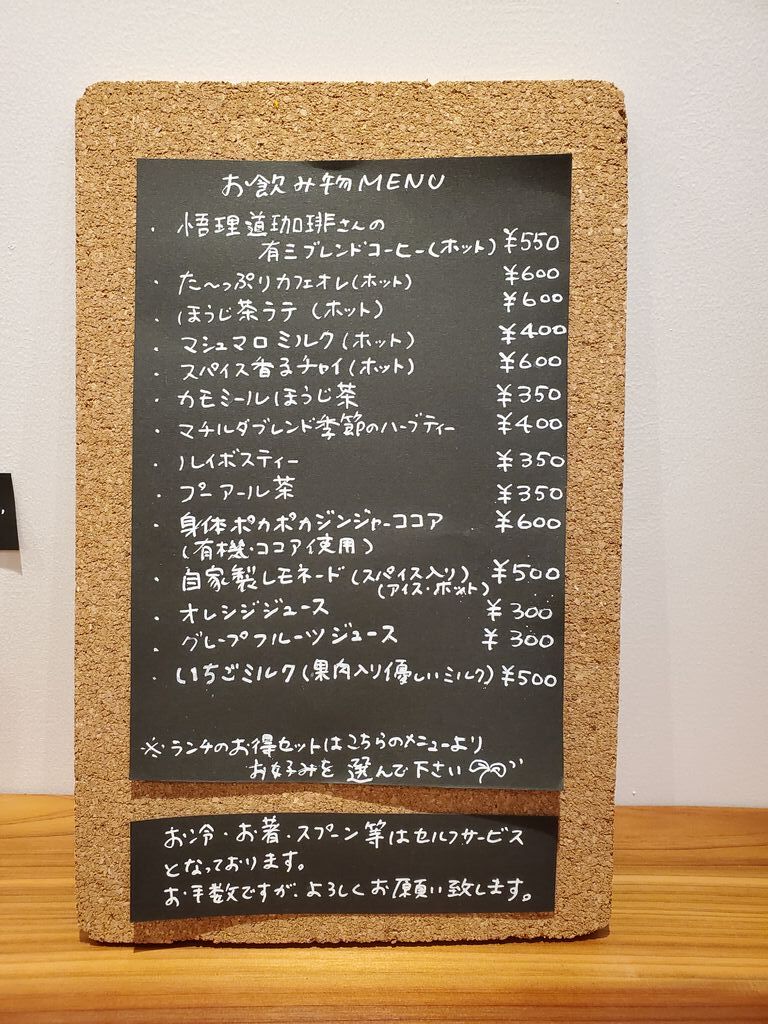 お飲み物MENU
・悟理道珈琲さんの
有三ブレンドコーヒー(ホット) ¥550
・た〜っぷりカフェオレ(ホット) ¥600
・ほうじ茶ラテ(ホット) ¥600
・マシュマロミルク(ホット) ¥400
・スパイス香るチャイ(ホット) ¥600
・カモミールほうじ茶 ¥350
・マチルダブレンド季節のハーブティー ¥400
・ルイボスティー ¥350
・プーアール茶 ¥350
・身体ポカポカジンジャーココア ¥600
(有機・ココア使用)
・自家製レモネード(スパイス入り) ¥500
(アイス・ホット)
・オレンジジュース ¥300
・グレープフルーツジュース ¥300
・いちごミルク(果肉入り優しいミルク) ¥500
※ランチのお得セットはこちらのメニューより
お好みを選んで下さい
お冷・お箸・スプーン等はセルフサービス
となっております。
お手数ですが、よろしくお願い致します。